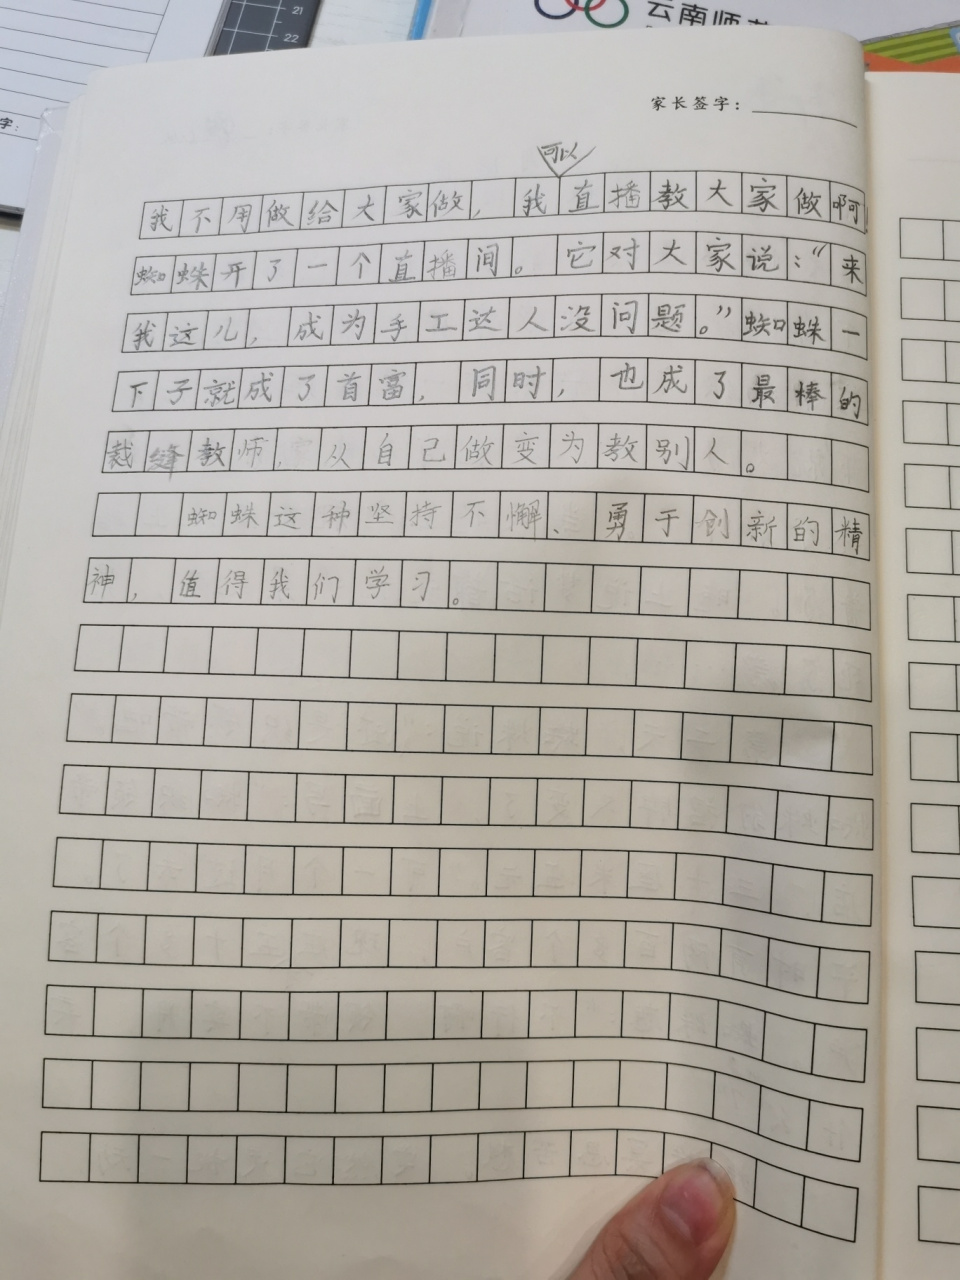 21
22
云南师
字：
家长签字：
可以
我不用做给大家做，我直播教大家做啊！
蜘蛛开了一个直播间。它对大家说：“来
我这儿，成为手工达人没问题。”蜘蛛一
下子就成了首富，同时，也成了最棒的
裁缝教师，从自己做变为教别人。
蜘蛛这种坚持不懈、勇于创新的精
神，值得我们学习。